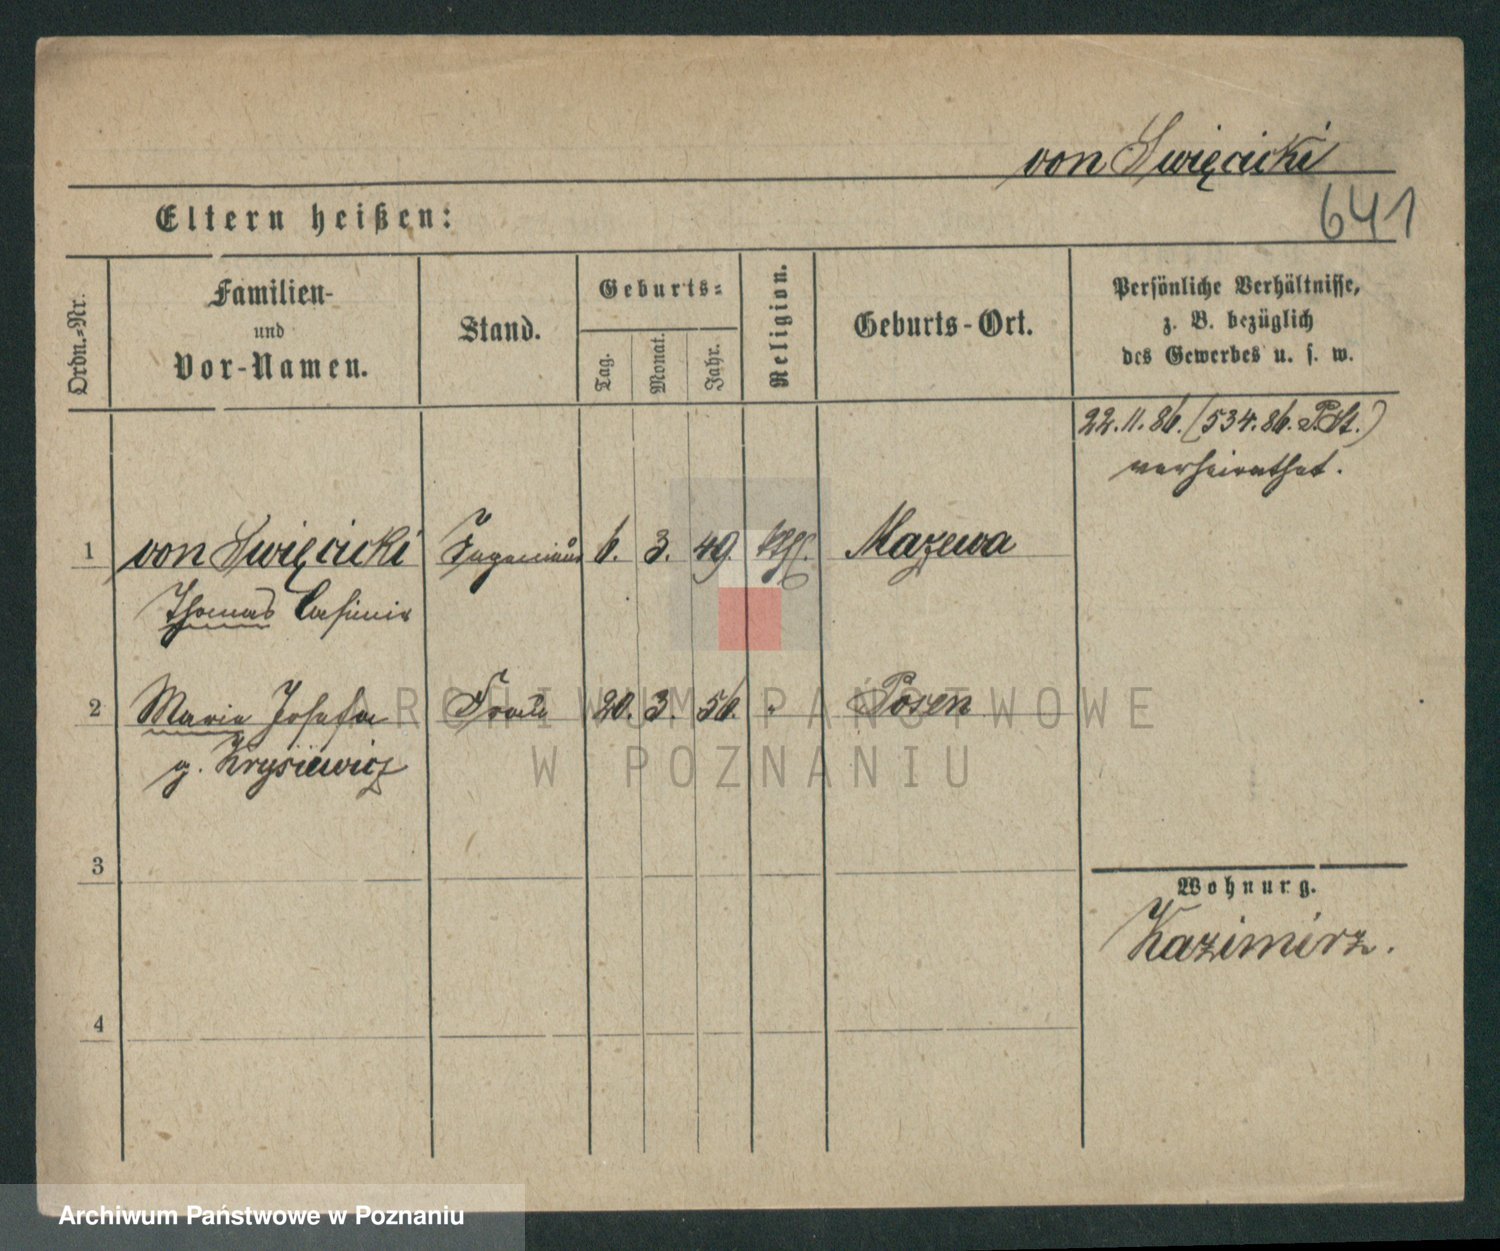 von Święcicki
641
Eltern heißen:
Ordn.-Nr.
Familien-
und
Vor-Namen.
Stand.
Geburts-
Tag.
Monat.
Jahr.
Religion.
Geburts-Ort.
Persönliche Verhältnisse,
z. B. bezüglich
des Gewerbes u. s. w.
22.11.86. (534.86. P.St.)
verheirathet.
1 von Święcicki Ingenieur 6. 3. 49. kth. Mazewa
Thomas Casimir
2 Maria Josefa Frau 20. 3. 56. " Posen
g. Krysiewicz
3
4
Wohnung.
Kazimirz.
ARCHIWUM PAŃSTWOWE
W POZNANIU
Archiwum Państwowe w Poznaniu